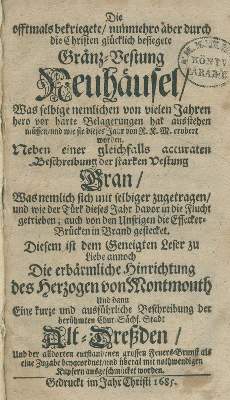 Die
offtmals bekriegete / nunmehro aber durch
die Christen glücklich besiegete
Gräntz-Vestung
Neuhäusel /
Was selbige nemlichen von vielen Jahren
hero vor harte Belagerungen hat ausstehen
müssen / und wie sie dieses Jahr von R. K. M. erobert
worden.
Neben einer gleichfalls accuraten
Beschreibung der starken Vestung
Gran /
Was nemlich sich mit selbiger zugetragen /
und wie der Türk dieses Jahr davor in die Flucht
getrieben; auch von den Unsrigen die Essecker-
Brücken in Brand gestecket.
Diesem ist dem Geneigten Leser zu
Liebe annoch
Die erbärmliche Hinrichtung
des Herzogen von Montmouth
Und dann
Eine kurze und ausführliche Beschreibung der
berühmten Chur-Sächs. Stadt
Alt-Dreßden /
Und der alldorten entstandenen grossen Feuers-Brunst als
eine Zugabe beygeordnet / und überal mit nothwendigen
Kupfern ausgeschmücket worden.
Gedruckt im Jahr Christi 1685.